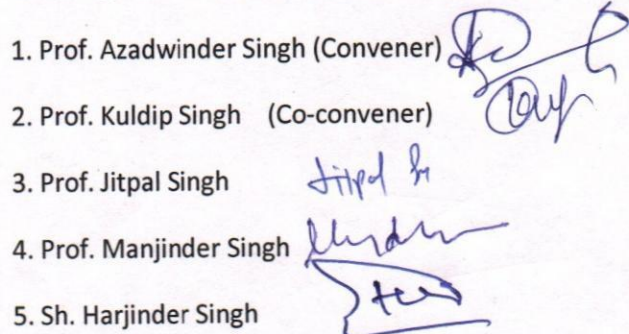 1. Prof. Azadwinder Singh (Convener)
2. Prof. Kuldip Singh (Co-convener)
3. Prof. Jitpal Singh Jitpal
4. Prof. Manjinder Singh
5. Sh. Harjinder Singh